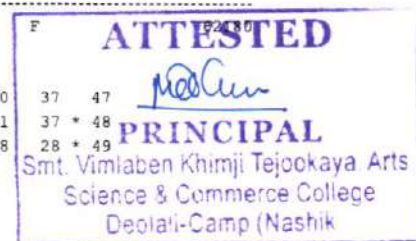 F 02180
ATTESTED
0 37 47
1 37 * 48
PRINCIPAL
8 28 * 49
Smt. Vimlaben Khimji Tejookaya Arts
Science & Commerce College
Deolali-Camp (Nashik